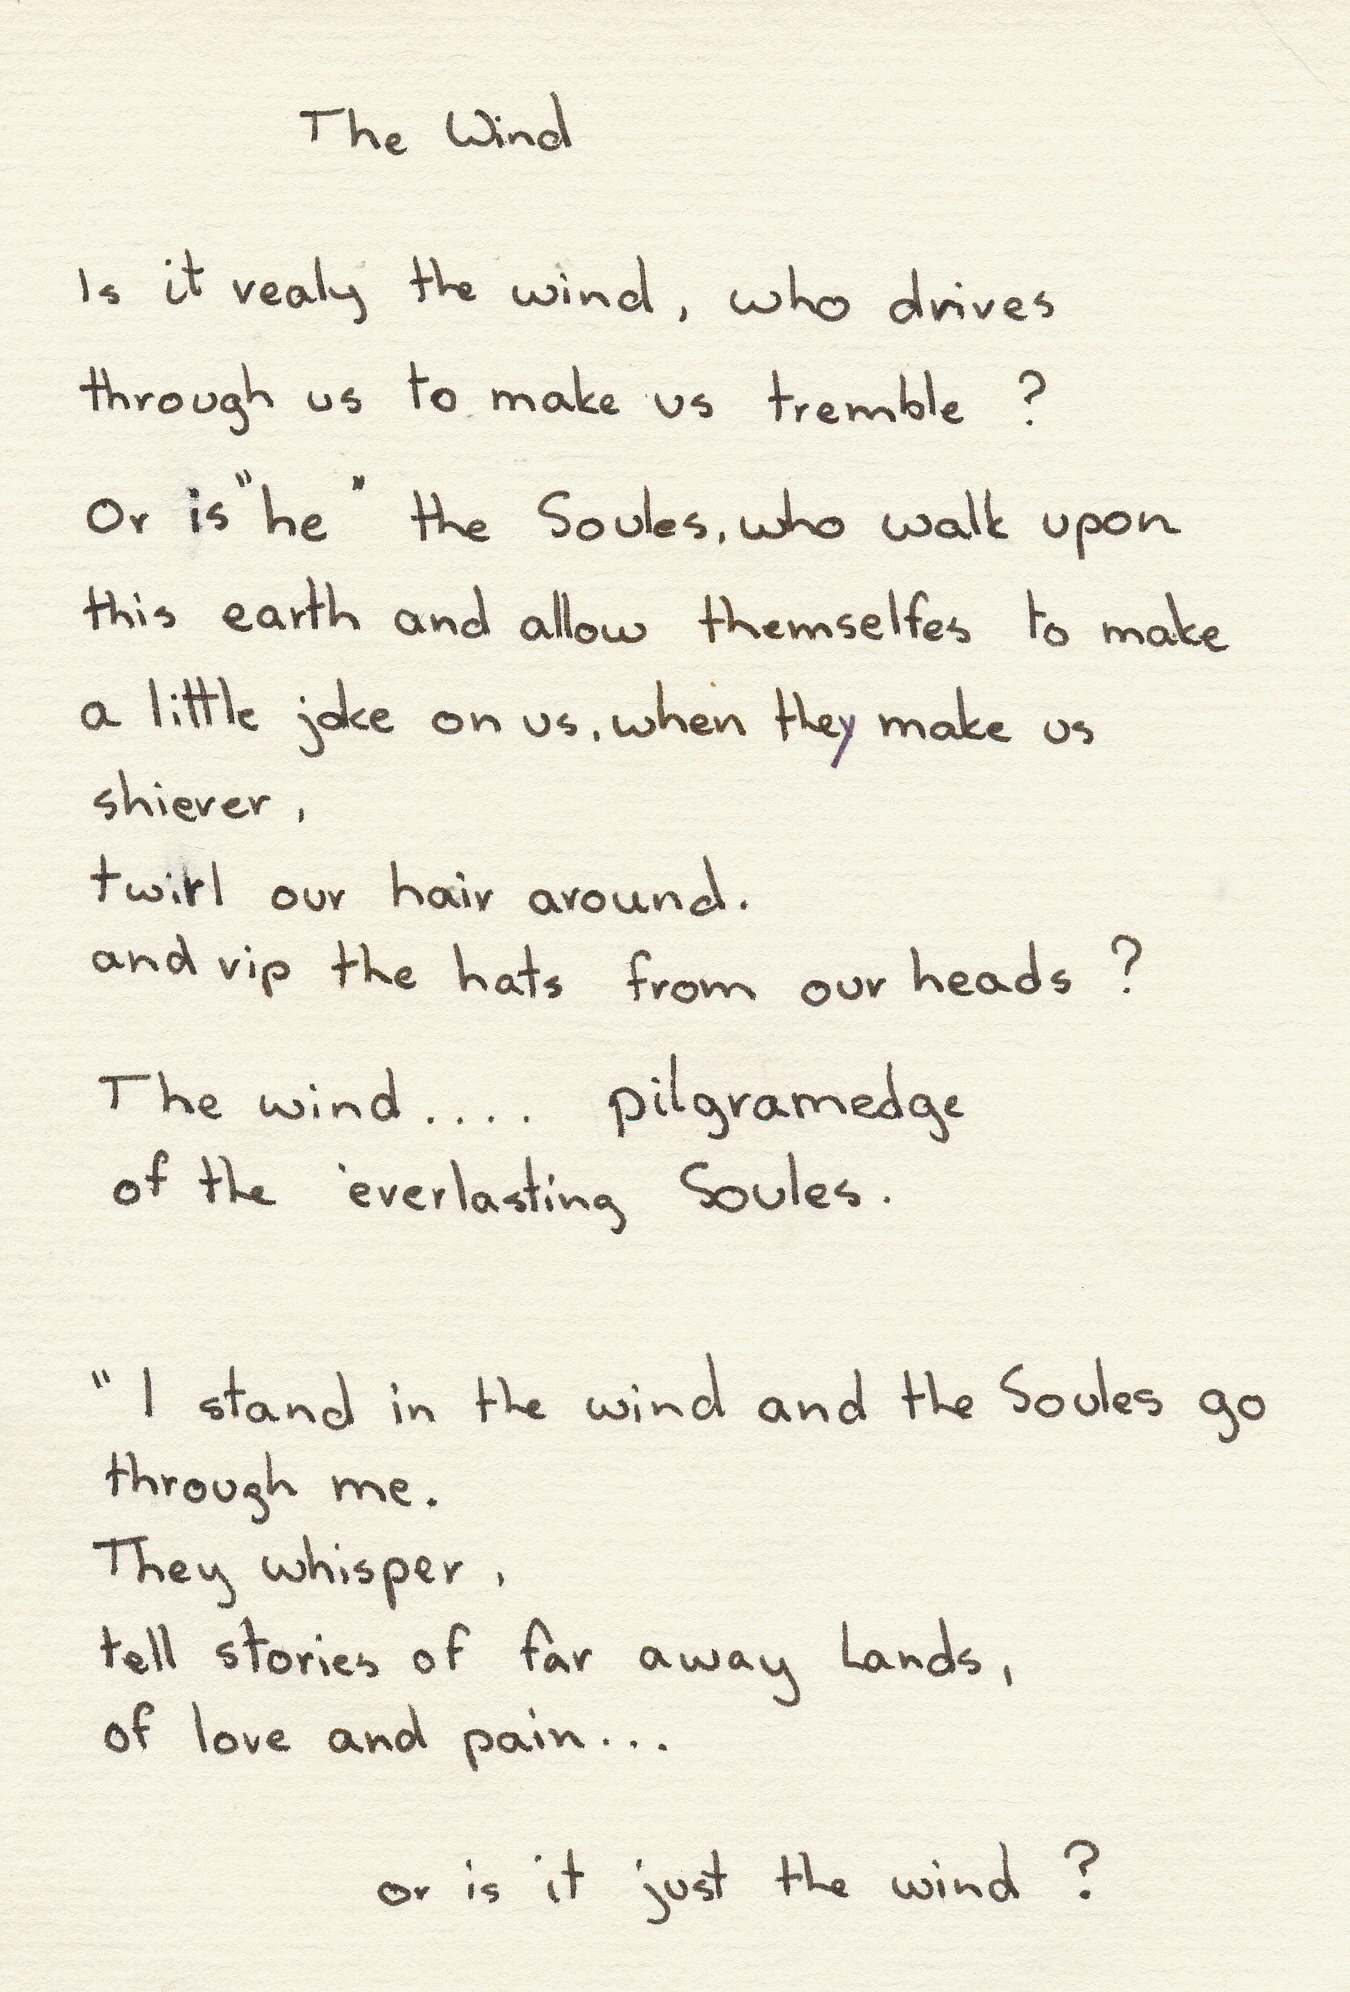 The Wind
Is it realy the wind, who drives
through us to make us tremble ?
Or is "he" the Soules, who walk upon
this earth and allow themselfes to make
a little joke on us, when they make us
shierer,
twirl our hair around.
and rip the hats from our heads ?
The wind.... pilgramedge
of the everlasting Soules.
" I stand in the wind and the Soules go
through me.
They whisper,
tell stories of far away Lands,
of love and pain...
or is it just the wind ?